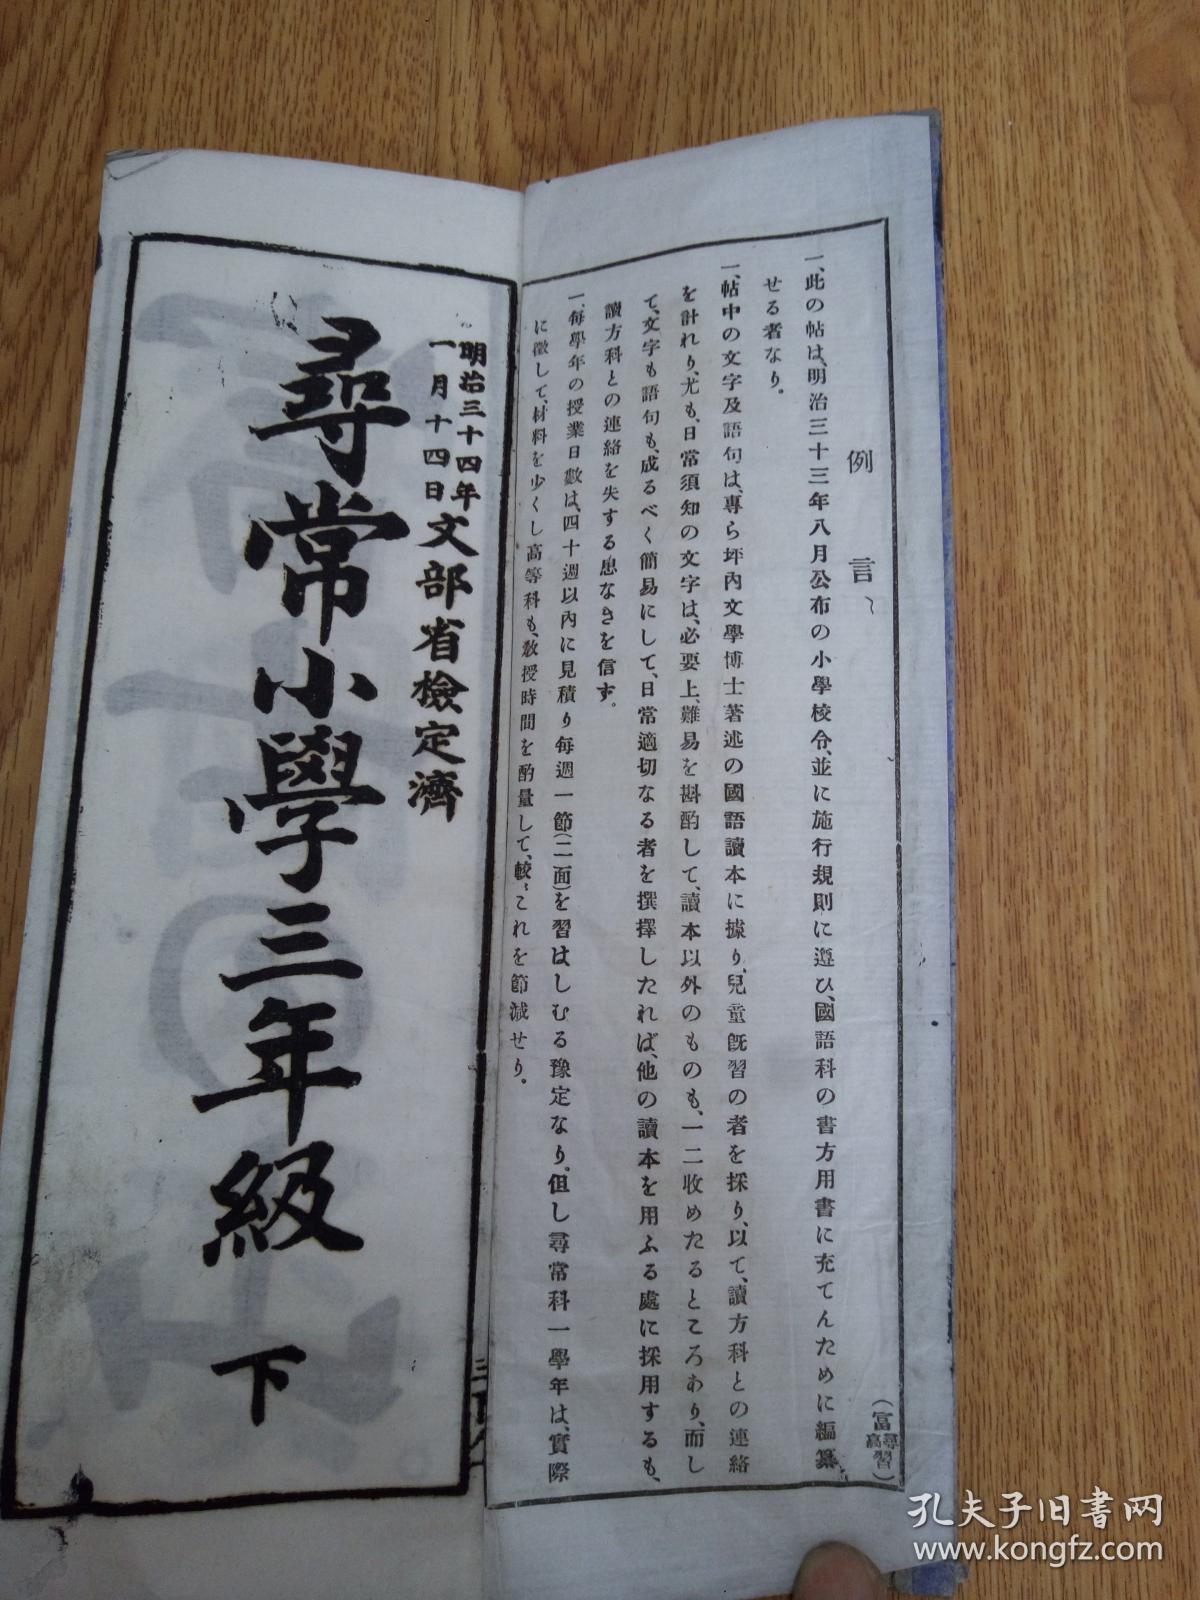 例言
一、此の帖は、明治三十三年八月公布の小學校令、並に施行規則に遵ひ、國語科の書方用書に充てんために編纂
せる者なり。
一、帖中の文字及語句は、專ら坪內文學博士著述の國語讀本に據り、兒童既習の者を採り、以て、讀方科との連絡
を計れり、尤も、日常須知の文字は、必要上、難易を斟酌して、讀本以外のものも、一二收めたるところあり、而し
て、文字も語句も、成るべく簡易にして、日常適切なる者を撰擇したれば、他の讀本を用ふる處に採用するも、
讀方科との連絡を失する患なきを信ず。
一、每學年の授業日數は、四十週以內に見積り每週一節(二面)を習はしむる豫定なり、但し尋常科一學年は、實際
に徵して、材料を少くし高等科も、敎授時間を酌量して、較〻これを節減せり。
(冨尋高習)
明治三十四年
一月十四日
文部省檢定濟
尋常小學三年級 下
孔夫子旧书网
www.kongfz.com